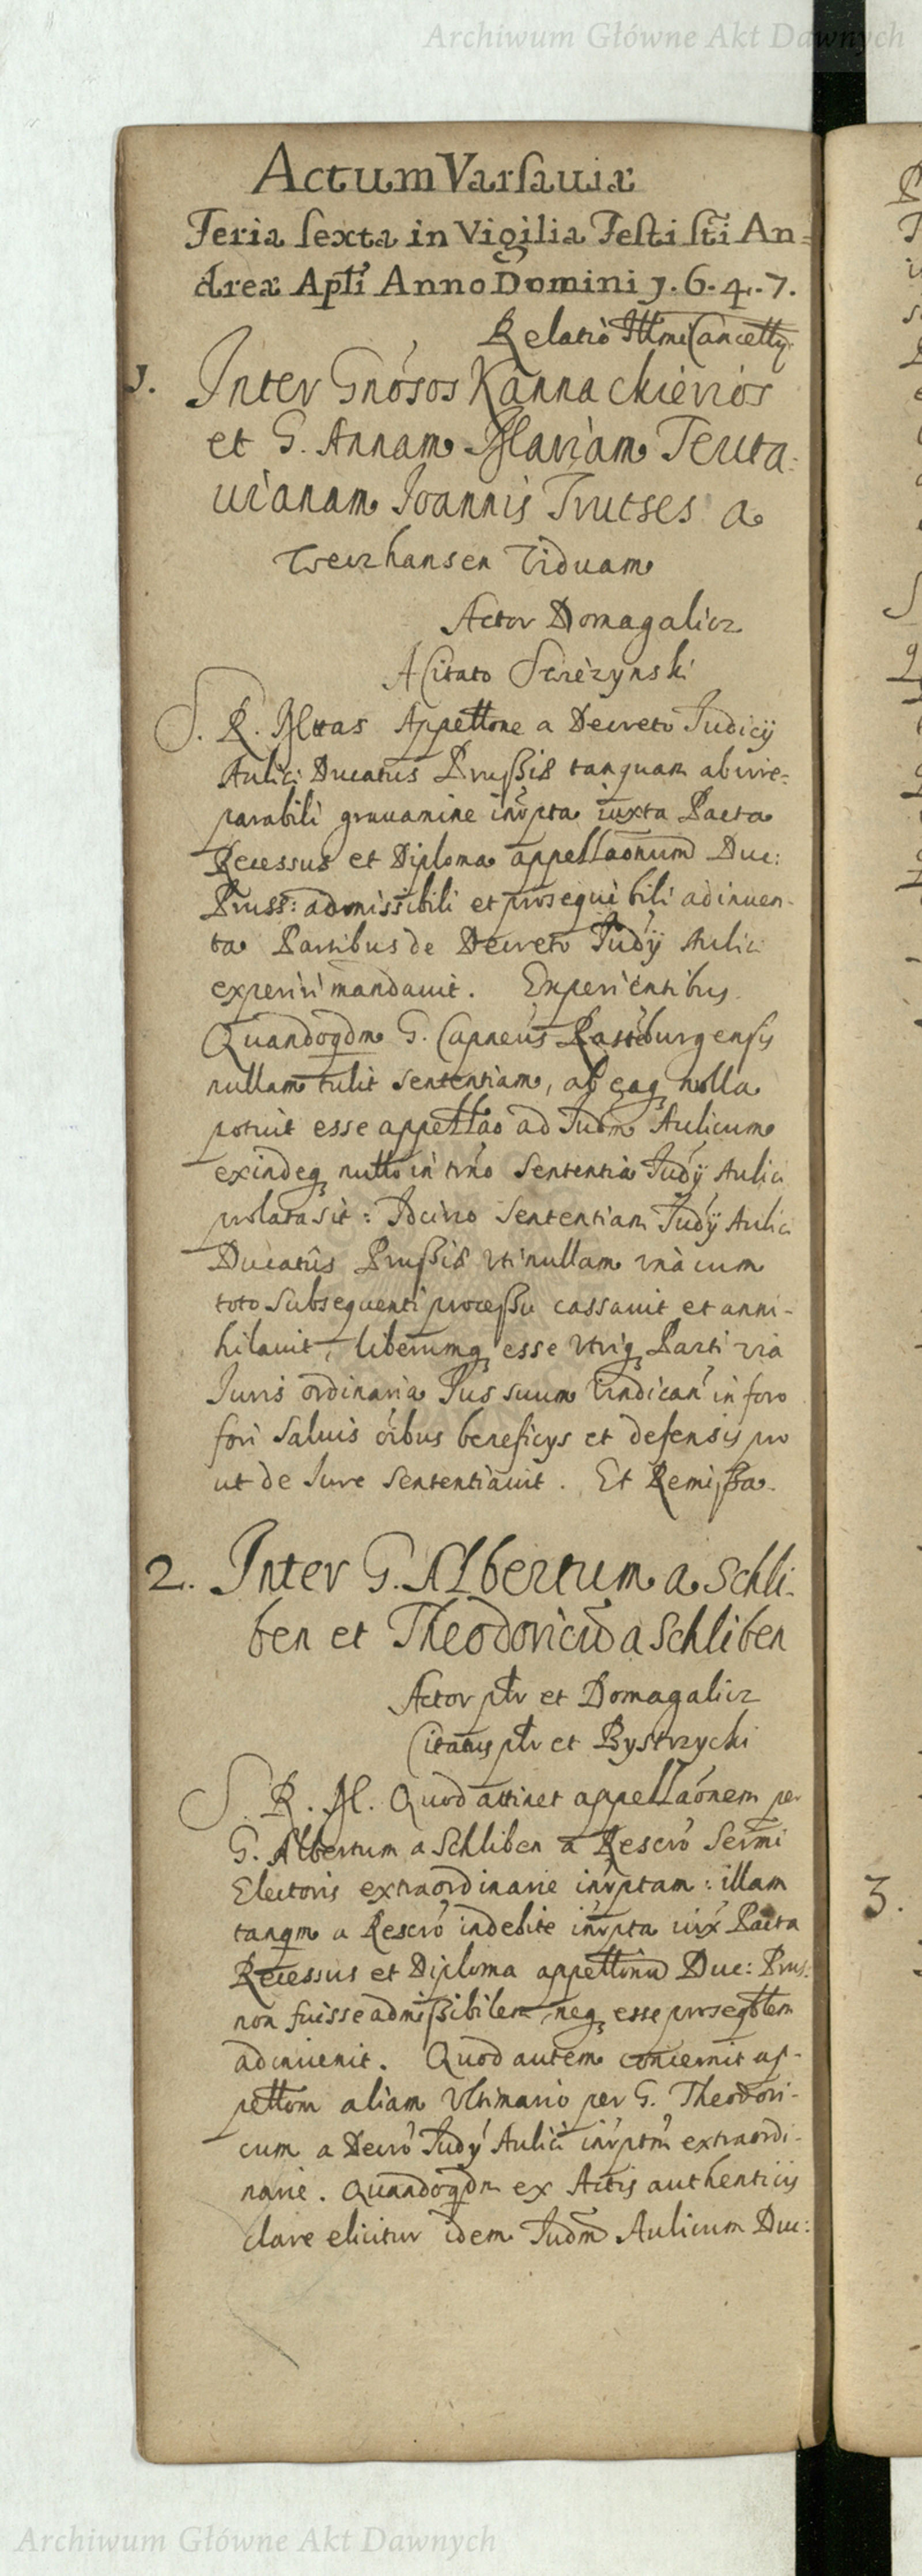 Archiwum Główne Akt Dawnych
Actum Varsaviæ
Feria sexta in Vigilia Festi sti An=
dreæ Apti Anno Domini 1.6.4.7.
Relatio Illmi Cancelly
1. Inter Gnosos Kannackierios
et G. Annam Mariam Teuta-
uianam Ioannis Trutses a
Weizhansen Viduam
Actor Domagalicz
A Citato Screzynski
S. R. Mttas Appettone a Decreto Judicij
Aulici Ducatus Prussiæ tanquam ab irre-
parabili grauamine inrpta iuxta Pacta
Recessus et Diploma appellaonum Duc:
Pruss: admissibili et prosequibili adinuen-
ta Partibus de Decreto Judij Aulici
experiri mandauit. Experientibus
Quandoqdm G. Capneus Rastburgensis
nullam tulit sententiam, ab eaq nulla
potuit esse appettao ad Judm Aulicum
exindeq nullo in trno sententia Judij Aulici
prolata sit: Idcirco sententiam Judij Aulici
Ducatus Prussiæ vti nullam vna cum
toto subsequenti processu cassauit et anni-
hilauit, liberumq esse vtriq Parti via
Iuris ordinaria Jus suum vindican in foro
fori saluis oibus beneficijs et defensis pro
ut de Iure sententiauit. Et Remissa.
2. Inter G. Albertum a Schli-
ben et Theodoricum a Schliben
Actor ptr et Domagalicz
Citatus ptr et Bystrzycki
S. R. M. Quod attinet appellaonem per
G. Albertum a Schliben a Rescro Sermi
Electoris extraordinarie inrptam: illam
tanqm a Rescro indebite inrpta iux Pacta
Recessus et Diploma appettonu Duc: Prus:
non fuisse admissibilem, neq esse proseqblem
adinuenit. Quod autem concernit ap-
pettom aliam vltimario per G. Theodori-
cum a Decro Judy Aulici inrptm extraordi-
narie. Quandoqdm ex Actis authenticis
clare elicitur idem Judm Aulicum Duc:
3.
Archiwum Główne Akt Dawnych